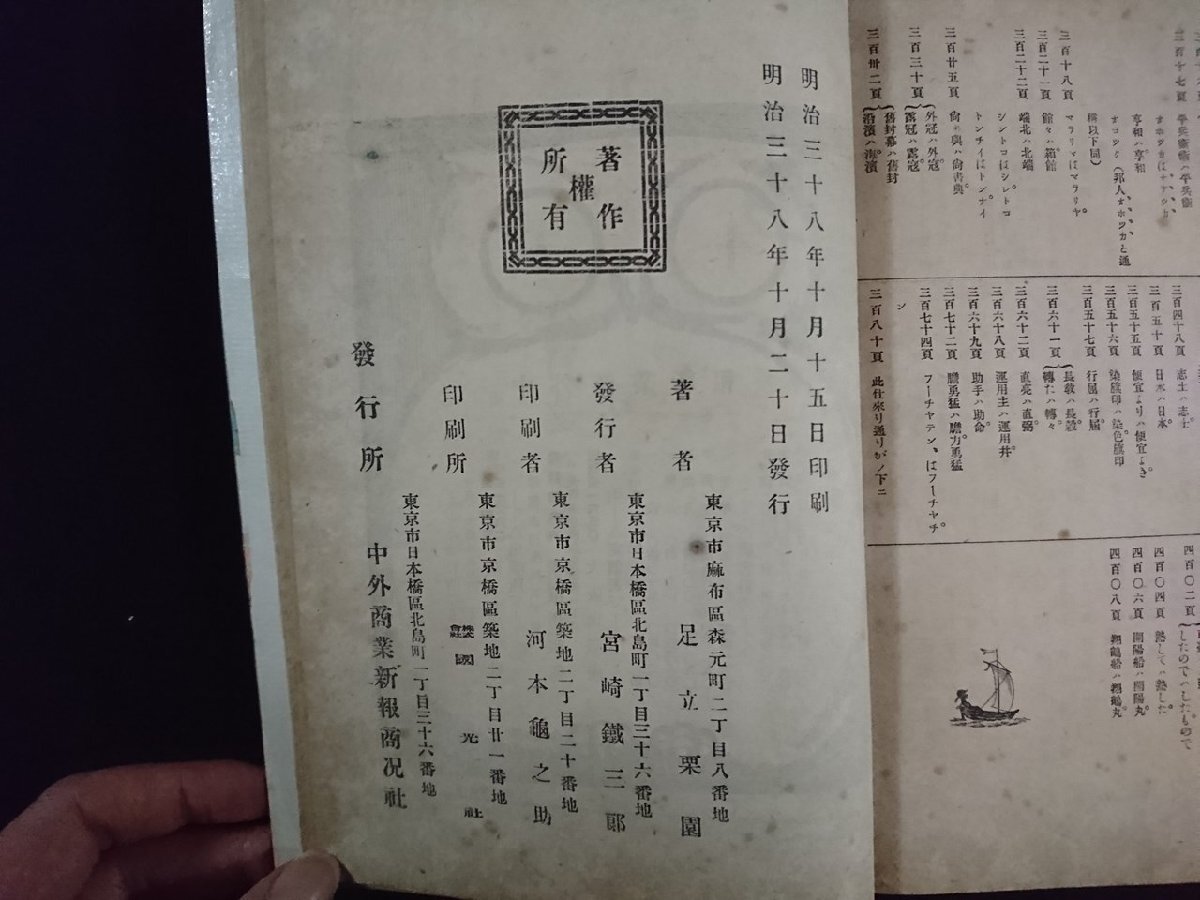 三百十八頁 マラリマはマラリヤ。
三百二十一頁 館々ハ箱館
三百二十二頁 端北ハ北端
シントコはシレトコ
三百廿五頁
トンチイはトンナイ
三百三十頁 外冠ハ外寇。
露冠ハ露寇。
三百卅二頁 舊封幕ハ舊封
沿濱ハ海濱
三百四十八頁 志土ハ志士。
三百五十頁 日木ハ日本。
三百五十五頁 便宜よりハ便宜よき。
三百五十六頁 染旗印ハ染色旗印
三百五十七頁 行屆ハ行屆。
三百六十一頁 長敎ハ長穀
轉たハ轉々
三百六十二頁 直亮ハ直弼。
三百六十八頁 運用主ハ運用幷。
三百六十九頁 助手ハ助命。
三百七十二頁 膽勇猛ハ膽力勇猛
三百七十四頁 フーチャテン、はフーチャチン
三百八十頁 此仕來り通りがノ下ニ
四百〇二頁 したのでハしたもので
四百〇四頁 熱してハ熱した
四百〇六頁 開陽船ハ開陽丸。
四百〇八頁 翔鶴船ハ翔鶴丸。
明治三十八年十月十五日印刷
明治三十八年十月二十日發行
著作
權
所有
東京市麻布區森元町二丁目八番地
著者 足立栗園
東京市日本橋區北島町一丁目三十六番地
發行者 宮崎鐵三郎
東京市京橋區築地二丁目二十番地
印刷者 河本龜之助
東京市京橋區築地二丁目廿一番地
印刷所 株式會社 國光社
東京市日本橋區北島町一丁目三十六番地
發行所 中外商業新報商况社